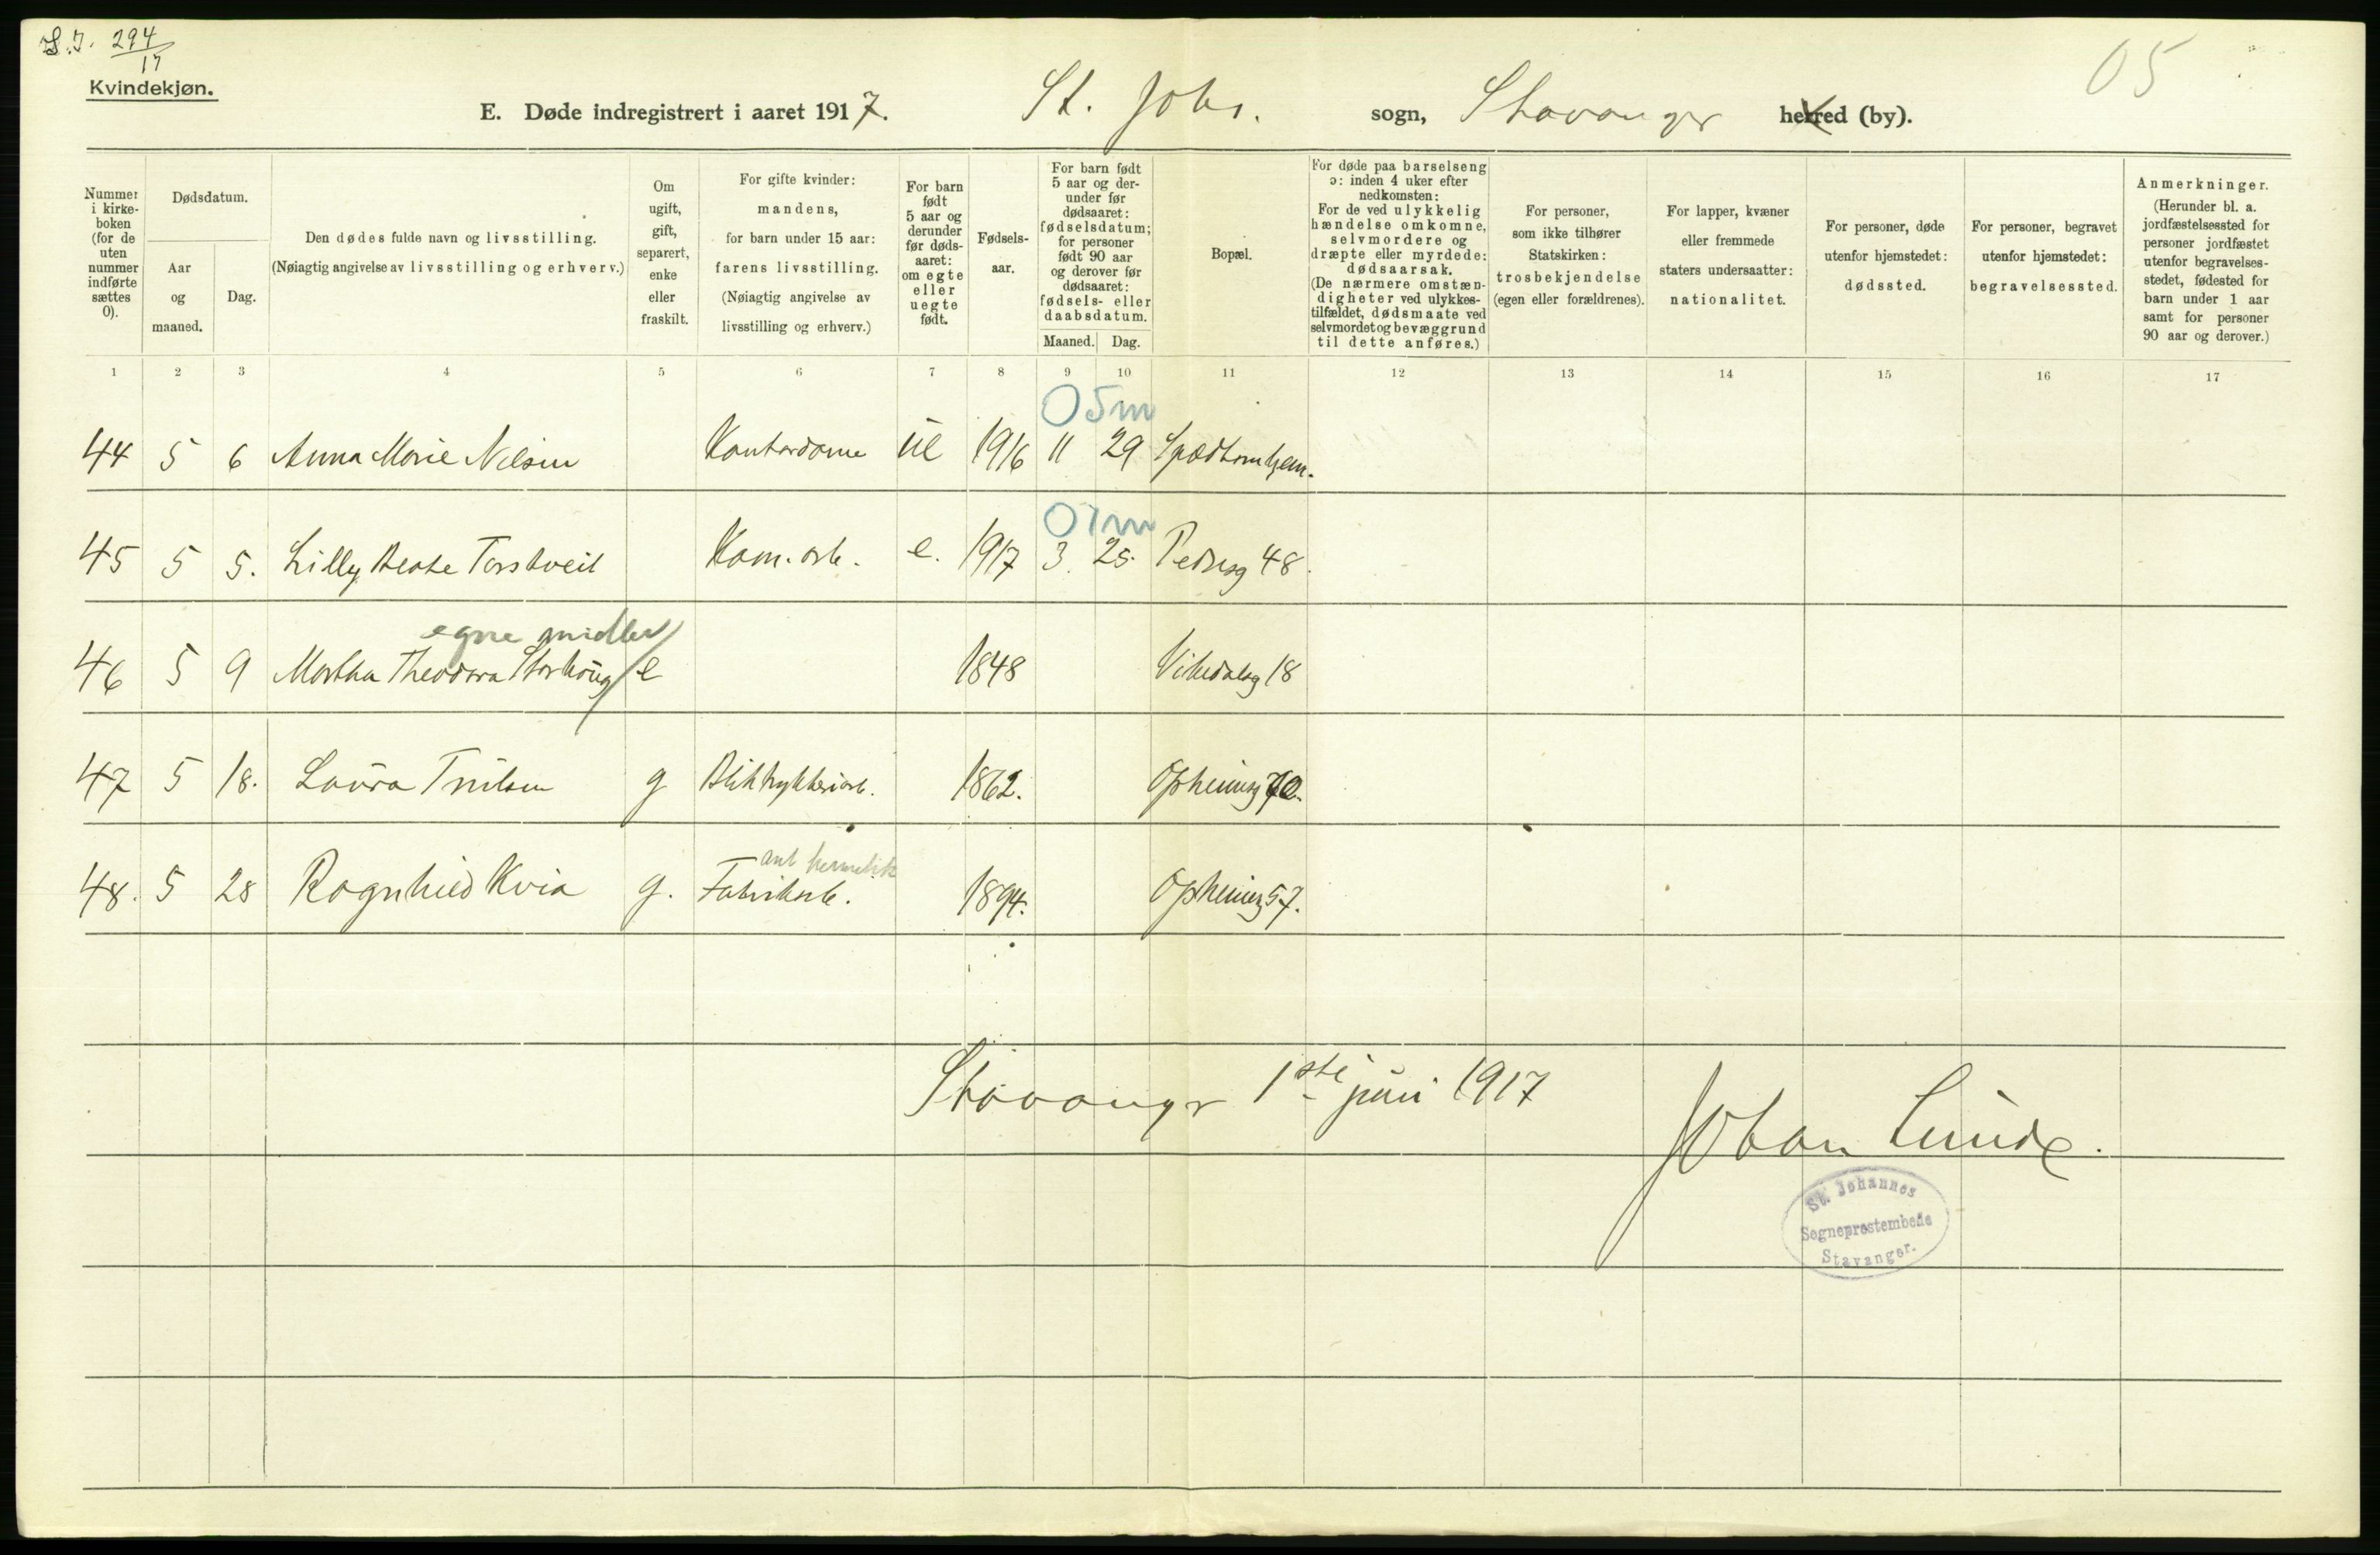 S.J. 294/17
Kvindekjøn.
05
E. Døde indregistrert i aaret 1917. St. Johs. sogn, Stavanger herred (by).
Nummer i kirkeboken (for de uten nummer indførte sættes 0).
Dødsdatum.
Aar og maaned.
Dag.
Den dødes fulde navn og livsstilling.
(Nøiagtig angivelse av livsstilling og erhverv.)
Om ugift, gift, separert, enke eller fraskilt.
For gifte kvinder: mandens, for barn under 15 aar: farens livsstilling. (Nøiagtig angivelse av livsstilling og erhverv.)
For barn født 5 aar og derunder før dødsaaret: om egte eller uegte født.
Fødselsaar.
For barn født 5 aar og derunder før dødsaaret: fødselsdatum; for personer født 90 aar og derover før dødsaaret: fødsels- eller daabsdatum.
Maaned. Dag.
Bopæl.
For døde paa barselseng ɔ: inden 4 uker efter nedkomsten: For de ved ulykkelig hændelse omkomne, selvmordere og dræpte eller myrdede: dødsaarsak. (De nærmere omstændigheter ved ulykkestilfældet, dødsmaate ved selvmordet og bevæggrund til dette anføres.)
For personer, som ikke tilhører Statskirken: trosbekjendelse (egen eller forældrenes).
For lapper, kvæner eller fremmede staters undersaatter: nationalitet.
For personer, døde utenfor hjemstedet: dødssted.
For personer, begravet utenfor hjemstedet: begravelsessted.
Anmerkninger. (Herunder bl. a. jordfæstelsessted for personer jordfæstet utenfor begravelsesstedet, fødested for barn under 1 aar samt for personer 90 aar og derover.)
1 2 3 4 5 6 7 8 9 10 11 12 13 14 15 16 17
05m
44 5 6 Anna Marie Nilsen Kontordame ue 1916 11 29 Spædbarnhjem.
01m
45 5 5. Lilly Beate Torstveit Kom. arb. e. 1917 3. 25. Pedersg 48.
egne midler
46 5 9 Martha Theodora Storhaug e 1848 Vikedalsg 18
47 5 18. Laura g Bliktrykkeriarb. 1862. Opheimsg
hermetik
48. 5 28 Ragnhild Kvia g. Fabrikarb. 1894. Opheimsg 57.
Stavanger 1ste juni 1917
Johan Lunde.
St. Johannes
Sogneprestembede
Stavanger.